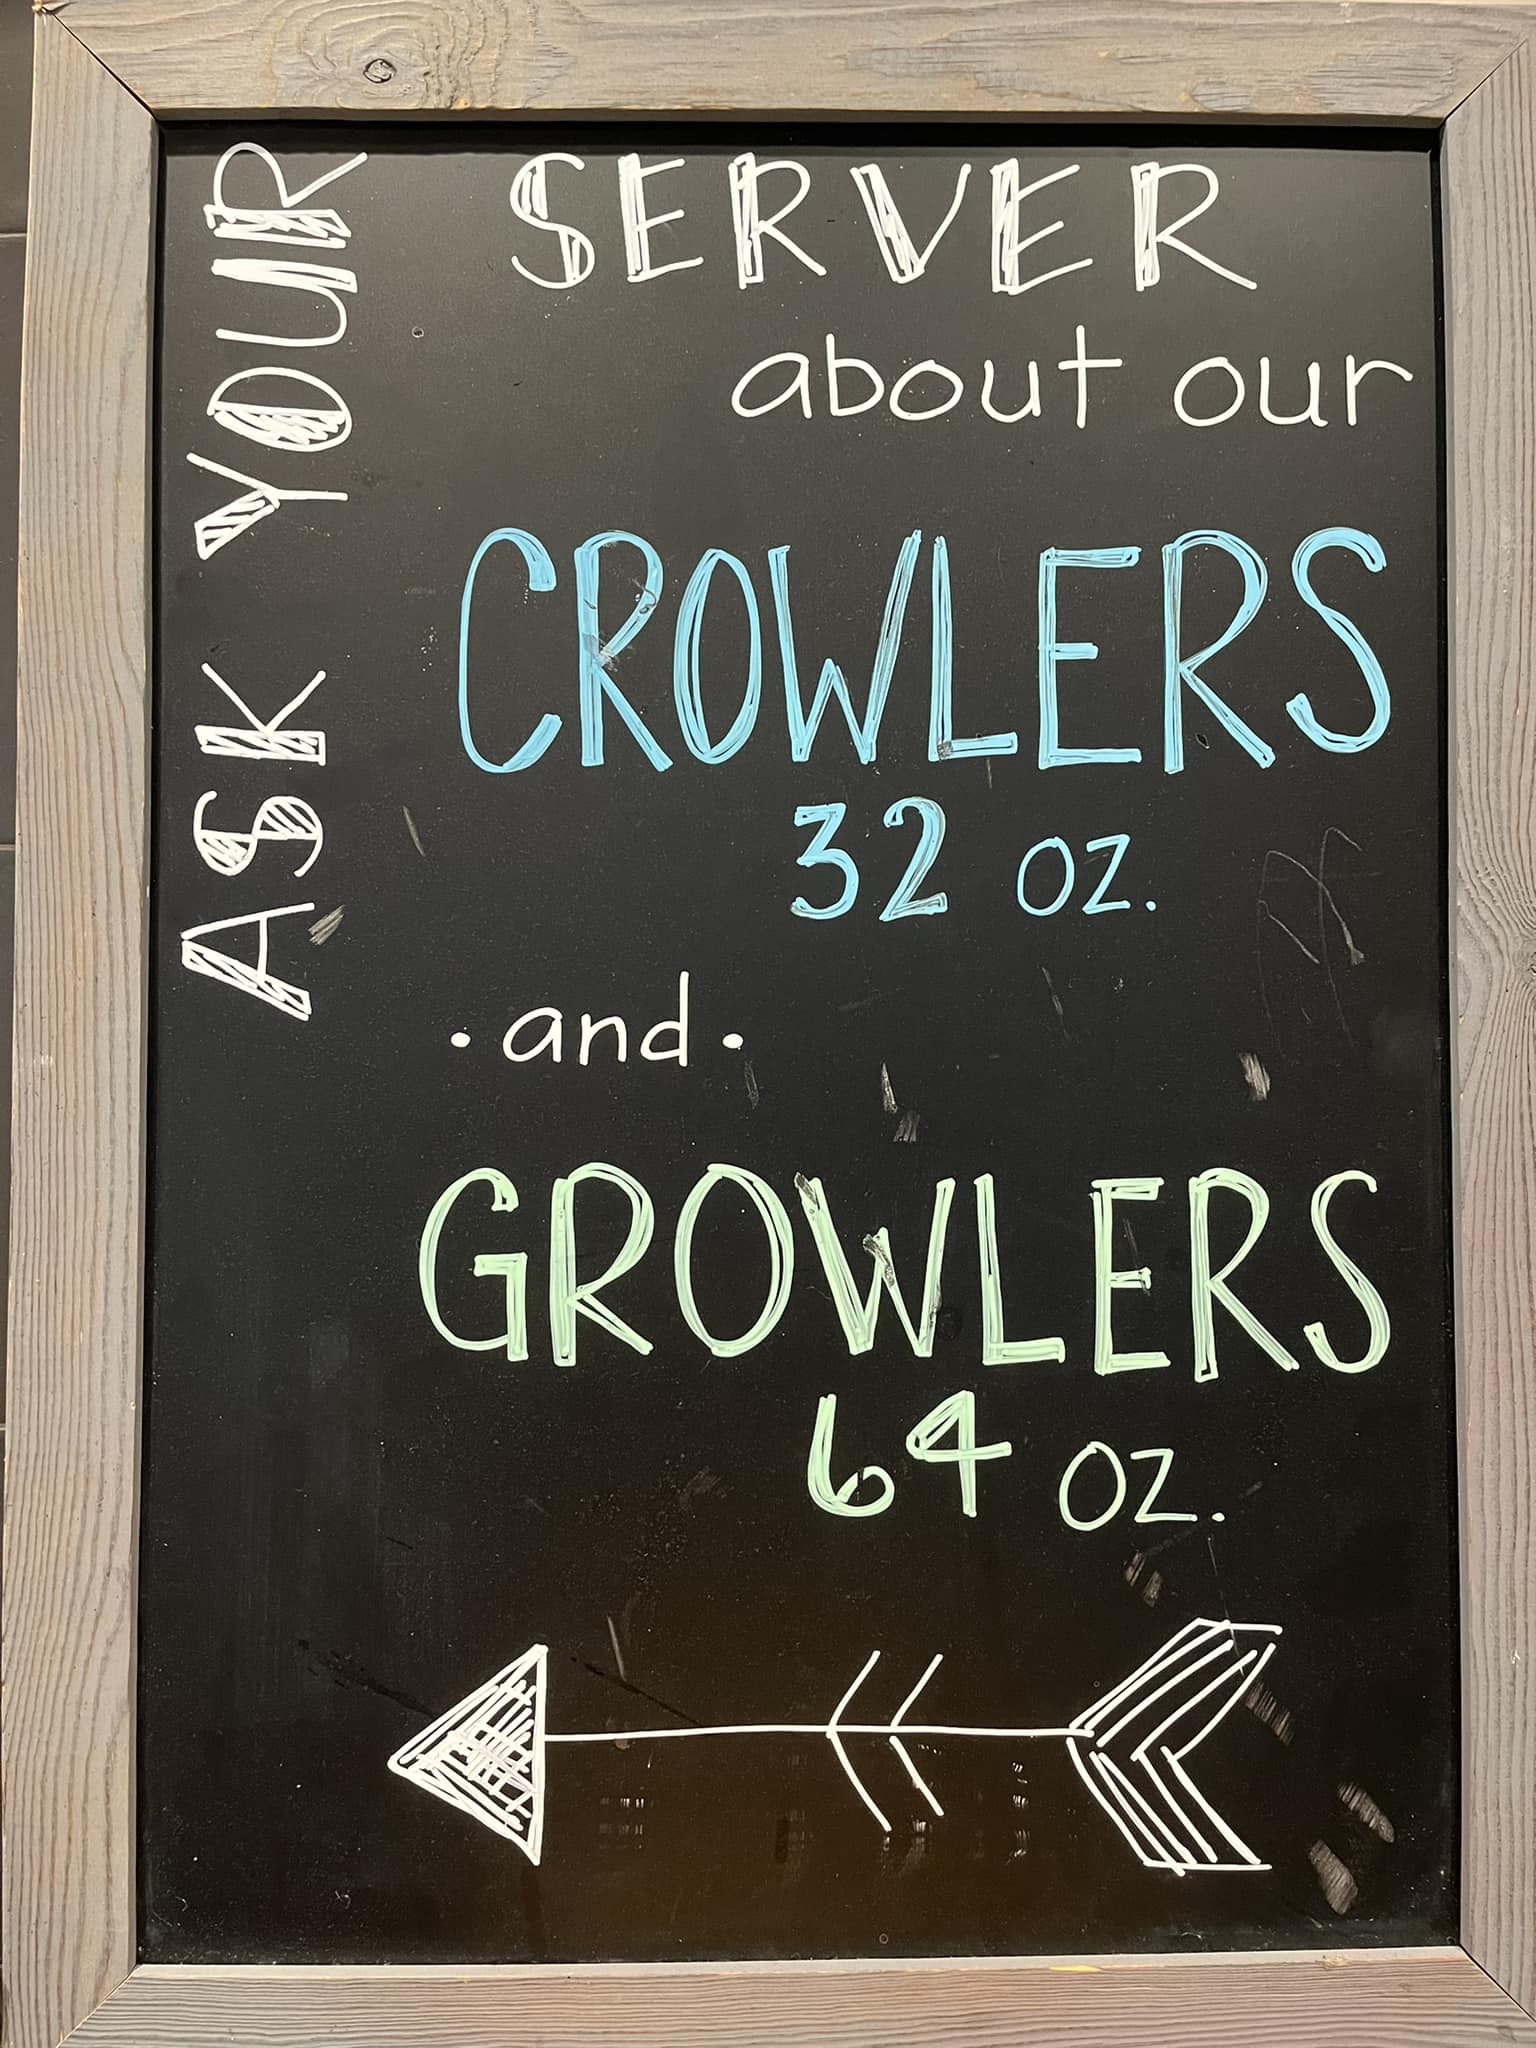 ASK YOUR
SERVER
about our
CROWLERS
32 oz.
· and ·
GROWLERS
64 oz.